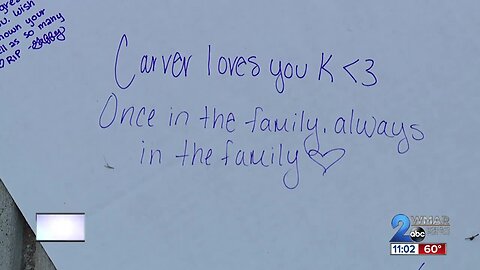 great
you. Wish
known your
as so many
RIP
Carver loves you K <3
Once in the family, always
in the family ♡
2 WMAR
abc
11:02 60°